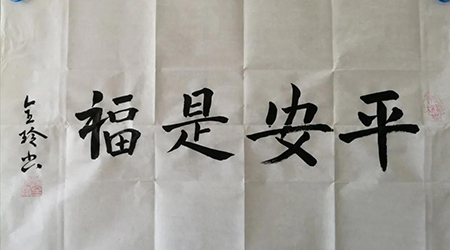 平安是福
金玲书